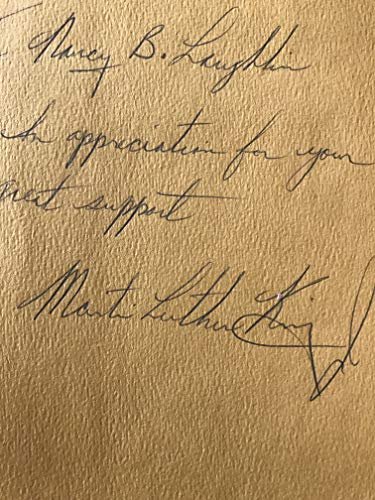 Nancy B. Laughlin
In appreciation for your
great support
Martin Luther King Jr